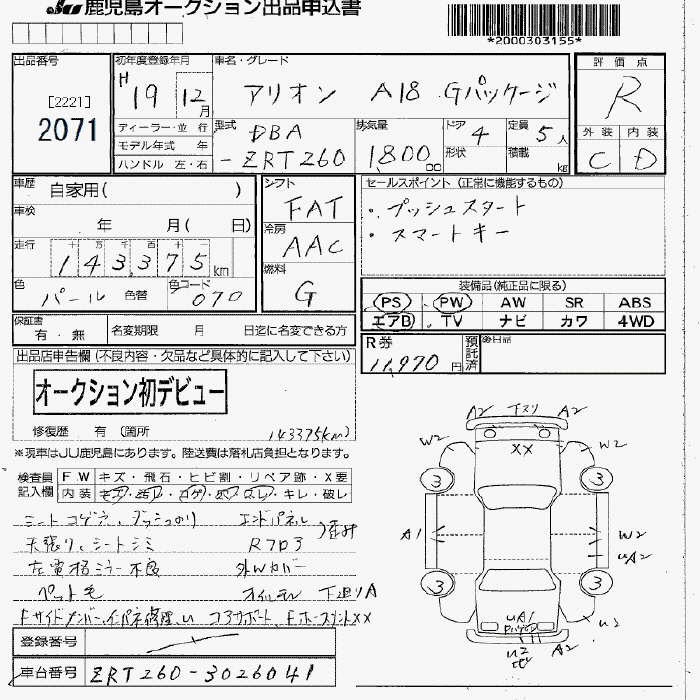 JU 鹿児島オークション出品申込書
*2000303155*
出品番号
[2221]
2071
初年度登録年月
H 19 12月
車名・グレード
アリオン A18 Gパッケージ
評価点
R
外装 内装
C D
ディーラー・並 行
モデル年式 年
ハンドル 左・右
型式
DBA
-ZRT260
排気量
1800 cc
ドア 4
形状
定員 5人
積載 kg
車歴 自家用( )
車検 年 月( 日)
走行 十 万 千 百 十 一
143375 km
色 パール 色替
色コード 070
シフト
FAT
冷房
AAC
燃料
G
セールスポイント (正常に機能するもの)
・プッシュスタート
・スマートキー
装備品(純正品に限る)
PS PW AW SR ABS
エアB TV ナビ カワ 4WD
保証書
有・無
名変期限 月 日迄に名変できる方
R券
11,970 円
預託済
後日品
出品店申告欄 (不良内容・欠品など具体的に記入して下さい)
オークション初デビュー
修復歴 有 (箇所
143375km)
※現車はJU鹿児島にあります。陸送費は落札店負担となります。
検査員記入欄
F.W キズ・飛石・ヒビ割・リペア跡・X要
内装 キズ・汚レ・コゲ・穴・スレ・キレ・破レ
シートコゲ穴、ダッシュのり エンドパネル
天張り、シートシミ Rフロア
歪み
左電格ミラー不良
ペット毛 オイルモレ 下廻りA
Fサイドメンバー、インパネ修理、U コアサポート、FホースメントXX
登録番号
車台番号 ZRT260-3026041
A2 下スリ A2
W2 XX W2
3 3
A1 W2
UA2
3 3
UA1
U2
U2 A2